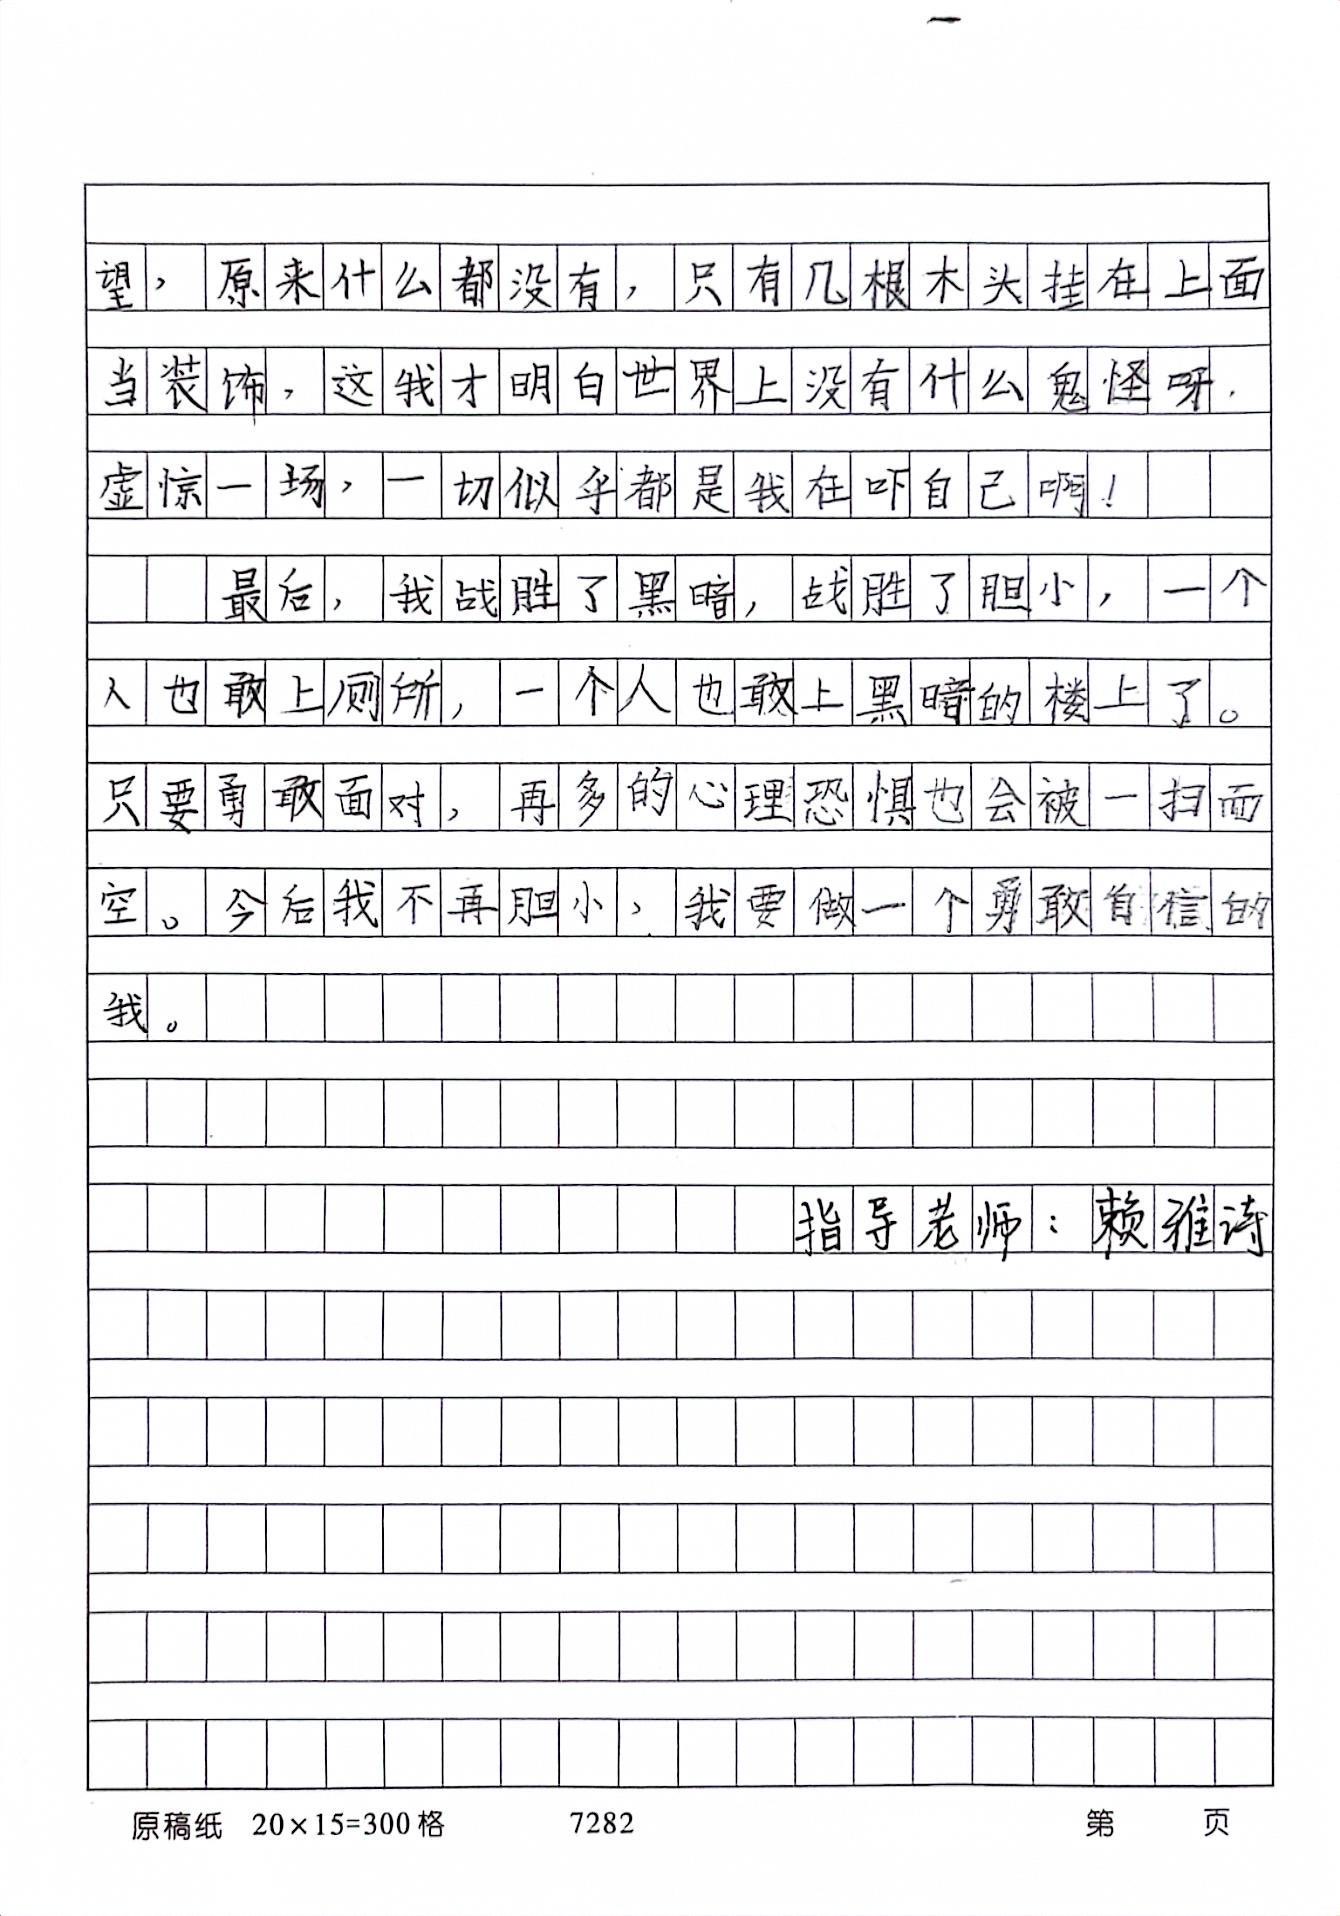 望，原来什么都没有，只有几根木头挂在上面
当装饰，这我才明白世界上没有什么鬼怪呀．
虚惊一场，一切似乎都是我在吓自己啊！
最后，我战胜了黑暗，战胜了胆小，一个
人也敢上厕所，一个人也敢上黑暗的楼上了。
只要勇敢面对，再多的心理恐惧也会被一扫而
空。今后我不再胆小，我要做一个勇敢自信的
我。
指导老师：赖雅诗
原稿纸 20×15=300格 7282 第 页